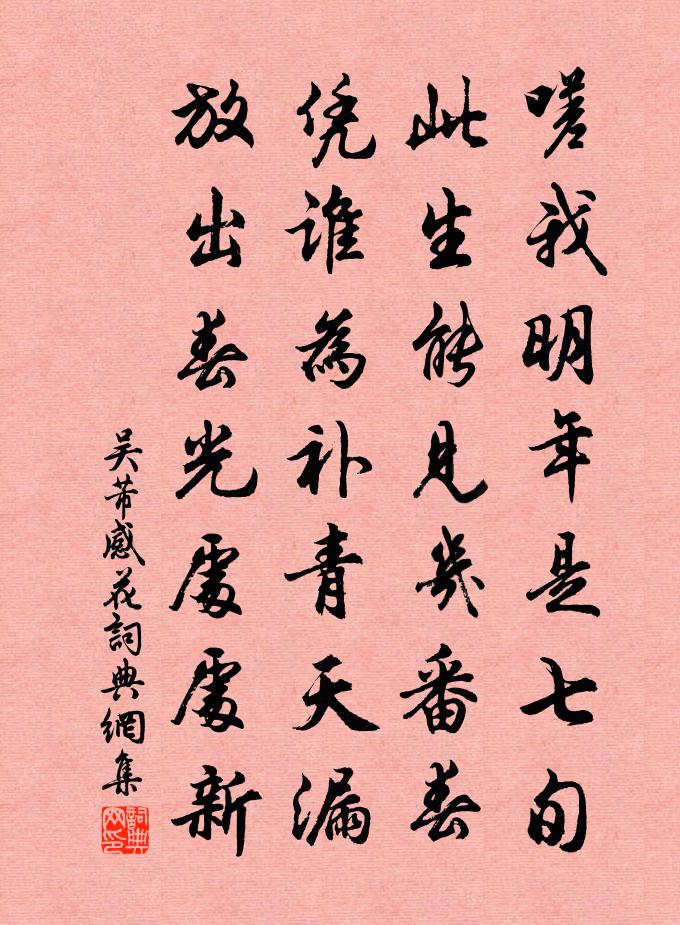 嗟我明年是七旬
此生能见几番春
凭谁為补青天漏
放出春光處處新
吴芾感花詞典網集
詞典网印